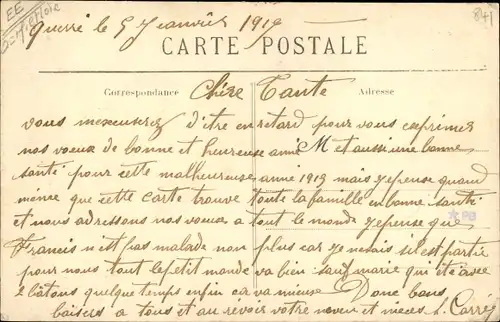 Querré le 5 Janvier 1919
841
CARTE POSTALE
Correspondance
Adresse
Chère Tante
vous mexcuserez d'être en retard pour vous exprimer
nos voeux de bonne et heureuse anné et aussi une bonne
santé pour cette malheureuse anné 1919 mais jepense quand
même que cette carte trouve toute la famille en bonne santé
et nous adressons nos voeux a tout le monde jepense que
Francis n'est pas malade non plus car je ne sais s'il est partie
pour nous tout le petit monde va bien sauf marie qui été avec
2 bâtons quelque temps enfin ca va mieux Donc bons
baisers a tous et au revoir votre neveu et nieces L. Carré